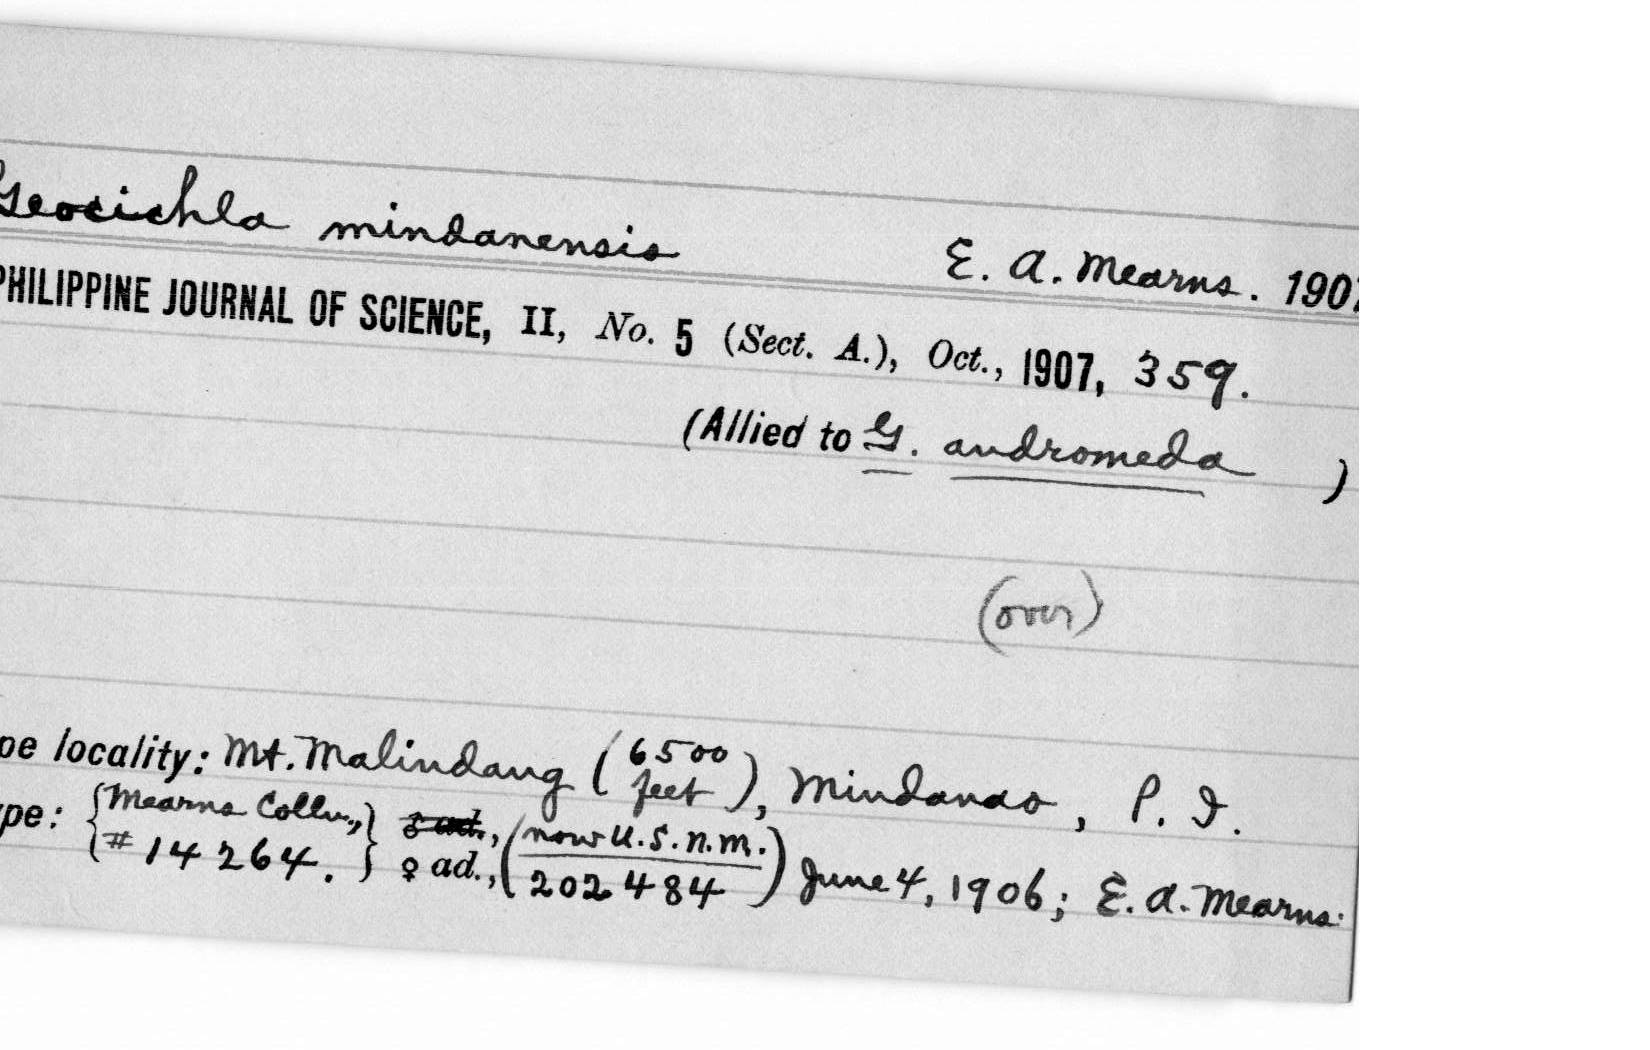 Geocichla mindanensis E. A. Mearns. 1907
PHILIPPINE JOURNAL OF SCIENCE, II, No. 5 (Sect. A.), Oct., 1907, 359.
(Allied to G. andromeda )
(over)
pe locality: Mt. Malindang (6500 feet), Mindanao, P. I.
ype: {Mearns Colln., # 14264.} ♂ ad., ♀ ad., (now U.S.N.M. 202484) June 4, 1906; E. A. Mearns.